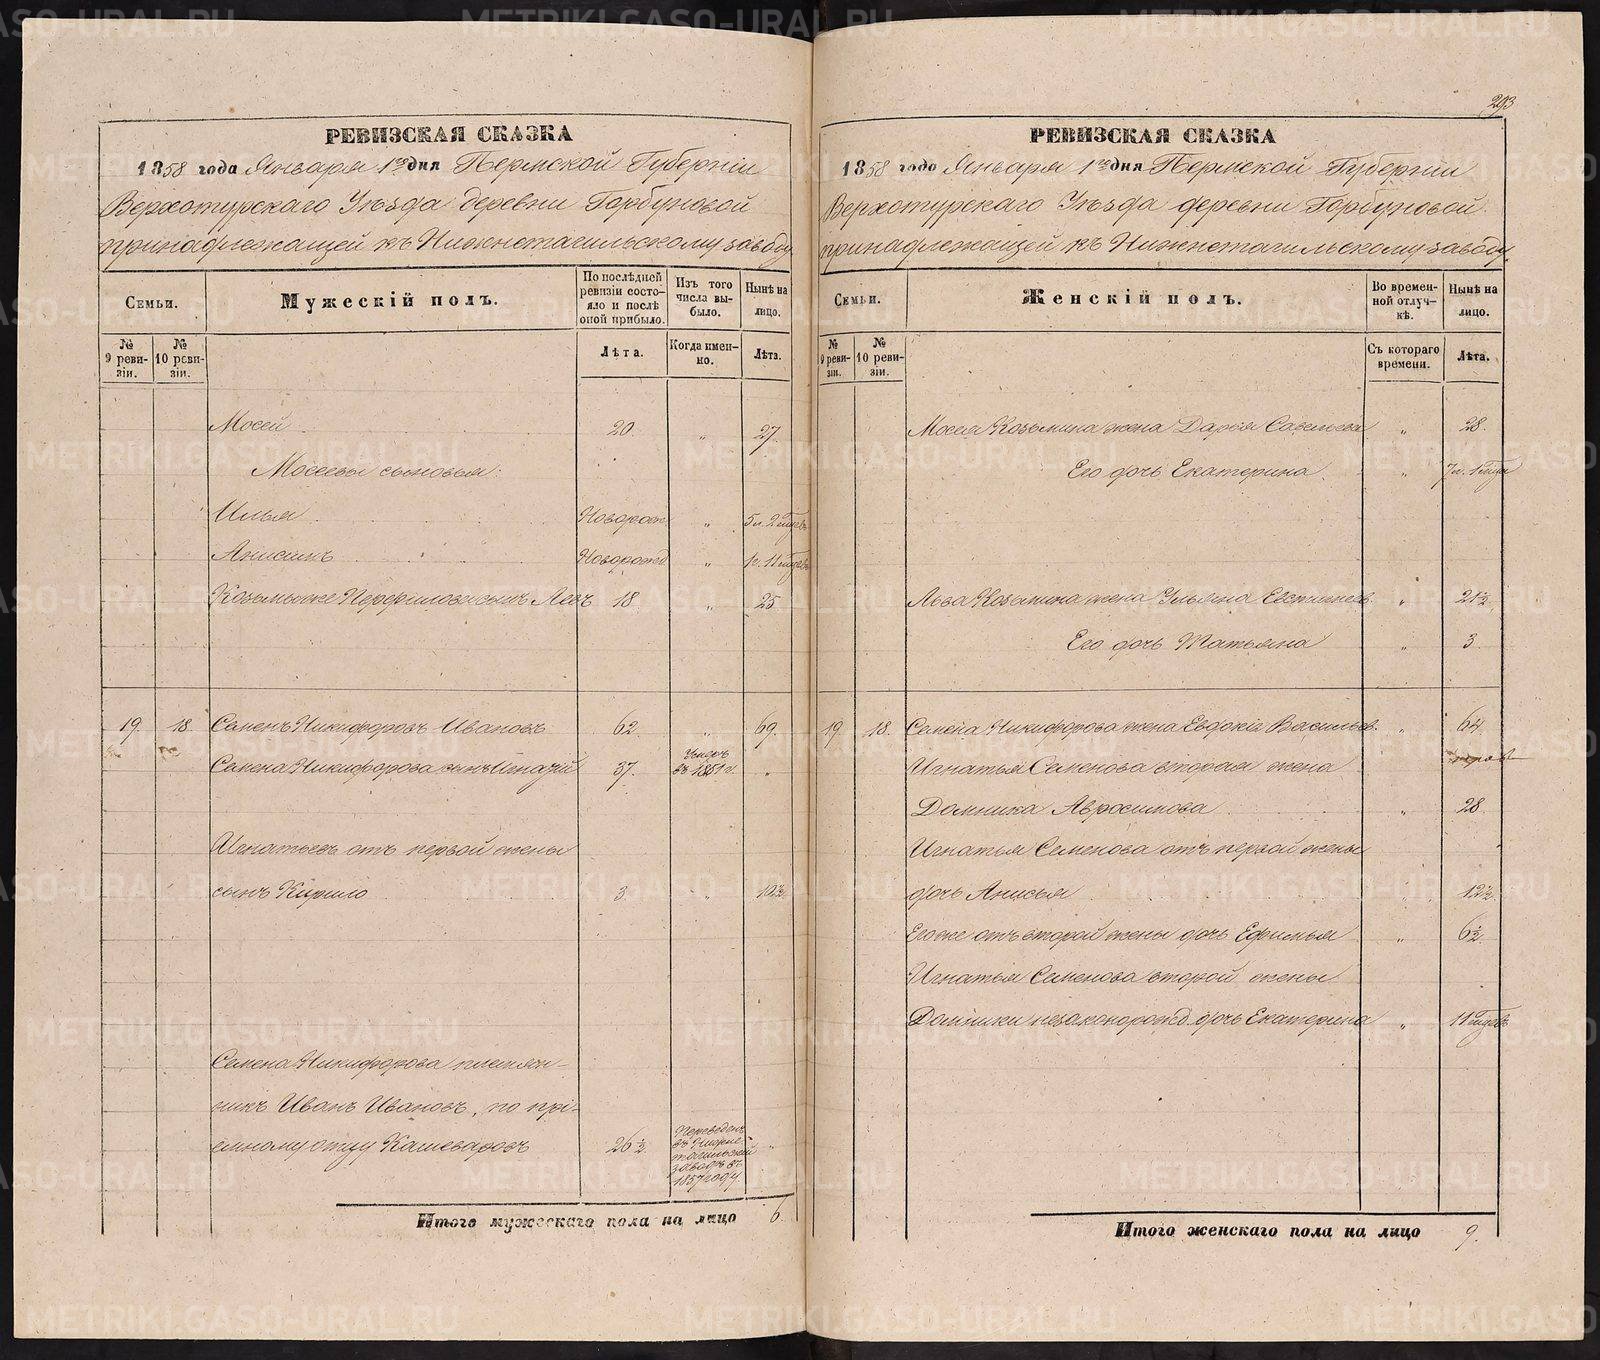 293
РЕВИЗСКАЯ СКАЗКА
1858 года Января 1го дня Пермской Губерніи
Верхотурскаго Уѣзда деревни Горбуновой
принадлежащей къ Нижнетагильскому заводу
Семьи.
Мужескій полъ.
По послѣдней ревизіи состояло и послѣ оной прибыло.
Изъ того числа выбыло.
Нынѣ на лицо.
№ 9 ревизіи.
№ 10 ревизіи.
Лѣта.
Когда именно.
Лѣта.
Мосей 20. " 27.
Мосеевы сыновья:
Илья Новорожд " 5 л. 2 мѣсяц
Анисимъ Новорожд " 1 г. 11 мѣсяц
Козьмы же Перфилова сынъ Левъ 18 " 25
19. 18. Семенъ Никифоровъ Ивановъ 62. " 69.
Семена Никифорова сынъ Игнатій 37. Умеръ въ 1851 г. "
Игнатьевъ отъ первой жены
сынъ Кирило 3. " 10½
Семена Никифорова племян-
никъ Иванъ Ивановъ, по прі-
емному отцу Кашеваровъ 26½ Переведенъ въ Нижнетагильскій заводъ въ 1857 году. "
Итого мужескаго пола на лицо 6.
РЕВИЗСКАЯ СКАЗКА
1858 года Января 1го дня Пермской Губерніи
Верхотурскаго Уѣзда деревни Горбуновой
принадлежащей къ Нижнетагильскому заводу
Семьи.
Женскій полъ.
Во временной отлучкѣ.
Нынѣ на лицо.
№ 9 ревизіи.
№ 10 ревизіи.
Съ котораго времени.
Лѣта.
Мосея Козьмина жена Дарья Савельева " 28.
Его дочь Екатерина " 7 л. 1 мѣся
Льва Козьмина жена Ульяна Евстигнеев. " 21½
Его дочь Татьяна " 3
19 18. Семена Никифорова жена Евдокія Васильев. " 64
Игнатья Семенова вторая жена
Домника Авросимова " 28
Игнатья Семенова отъ первой жены
дочь Анисья " 12½
Его же отъ второй жены дочь Ефимья " 6½
Игнатья Семенова второй жены
Домники незаконорожд. дочь Екатерина " 11 мѣсяц
Итого женскаго пола на лицо 9.
METRIKI.GASO-URAL.RU